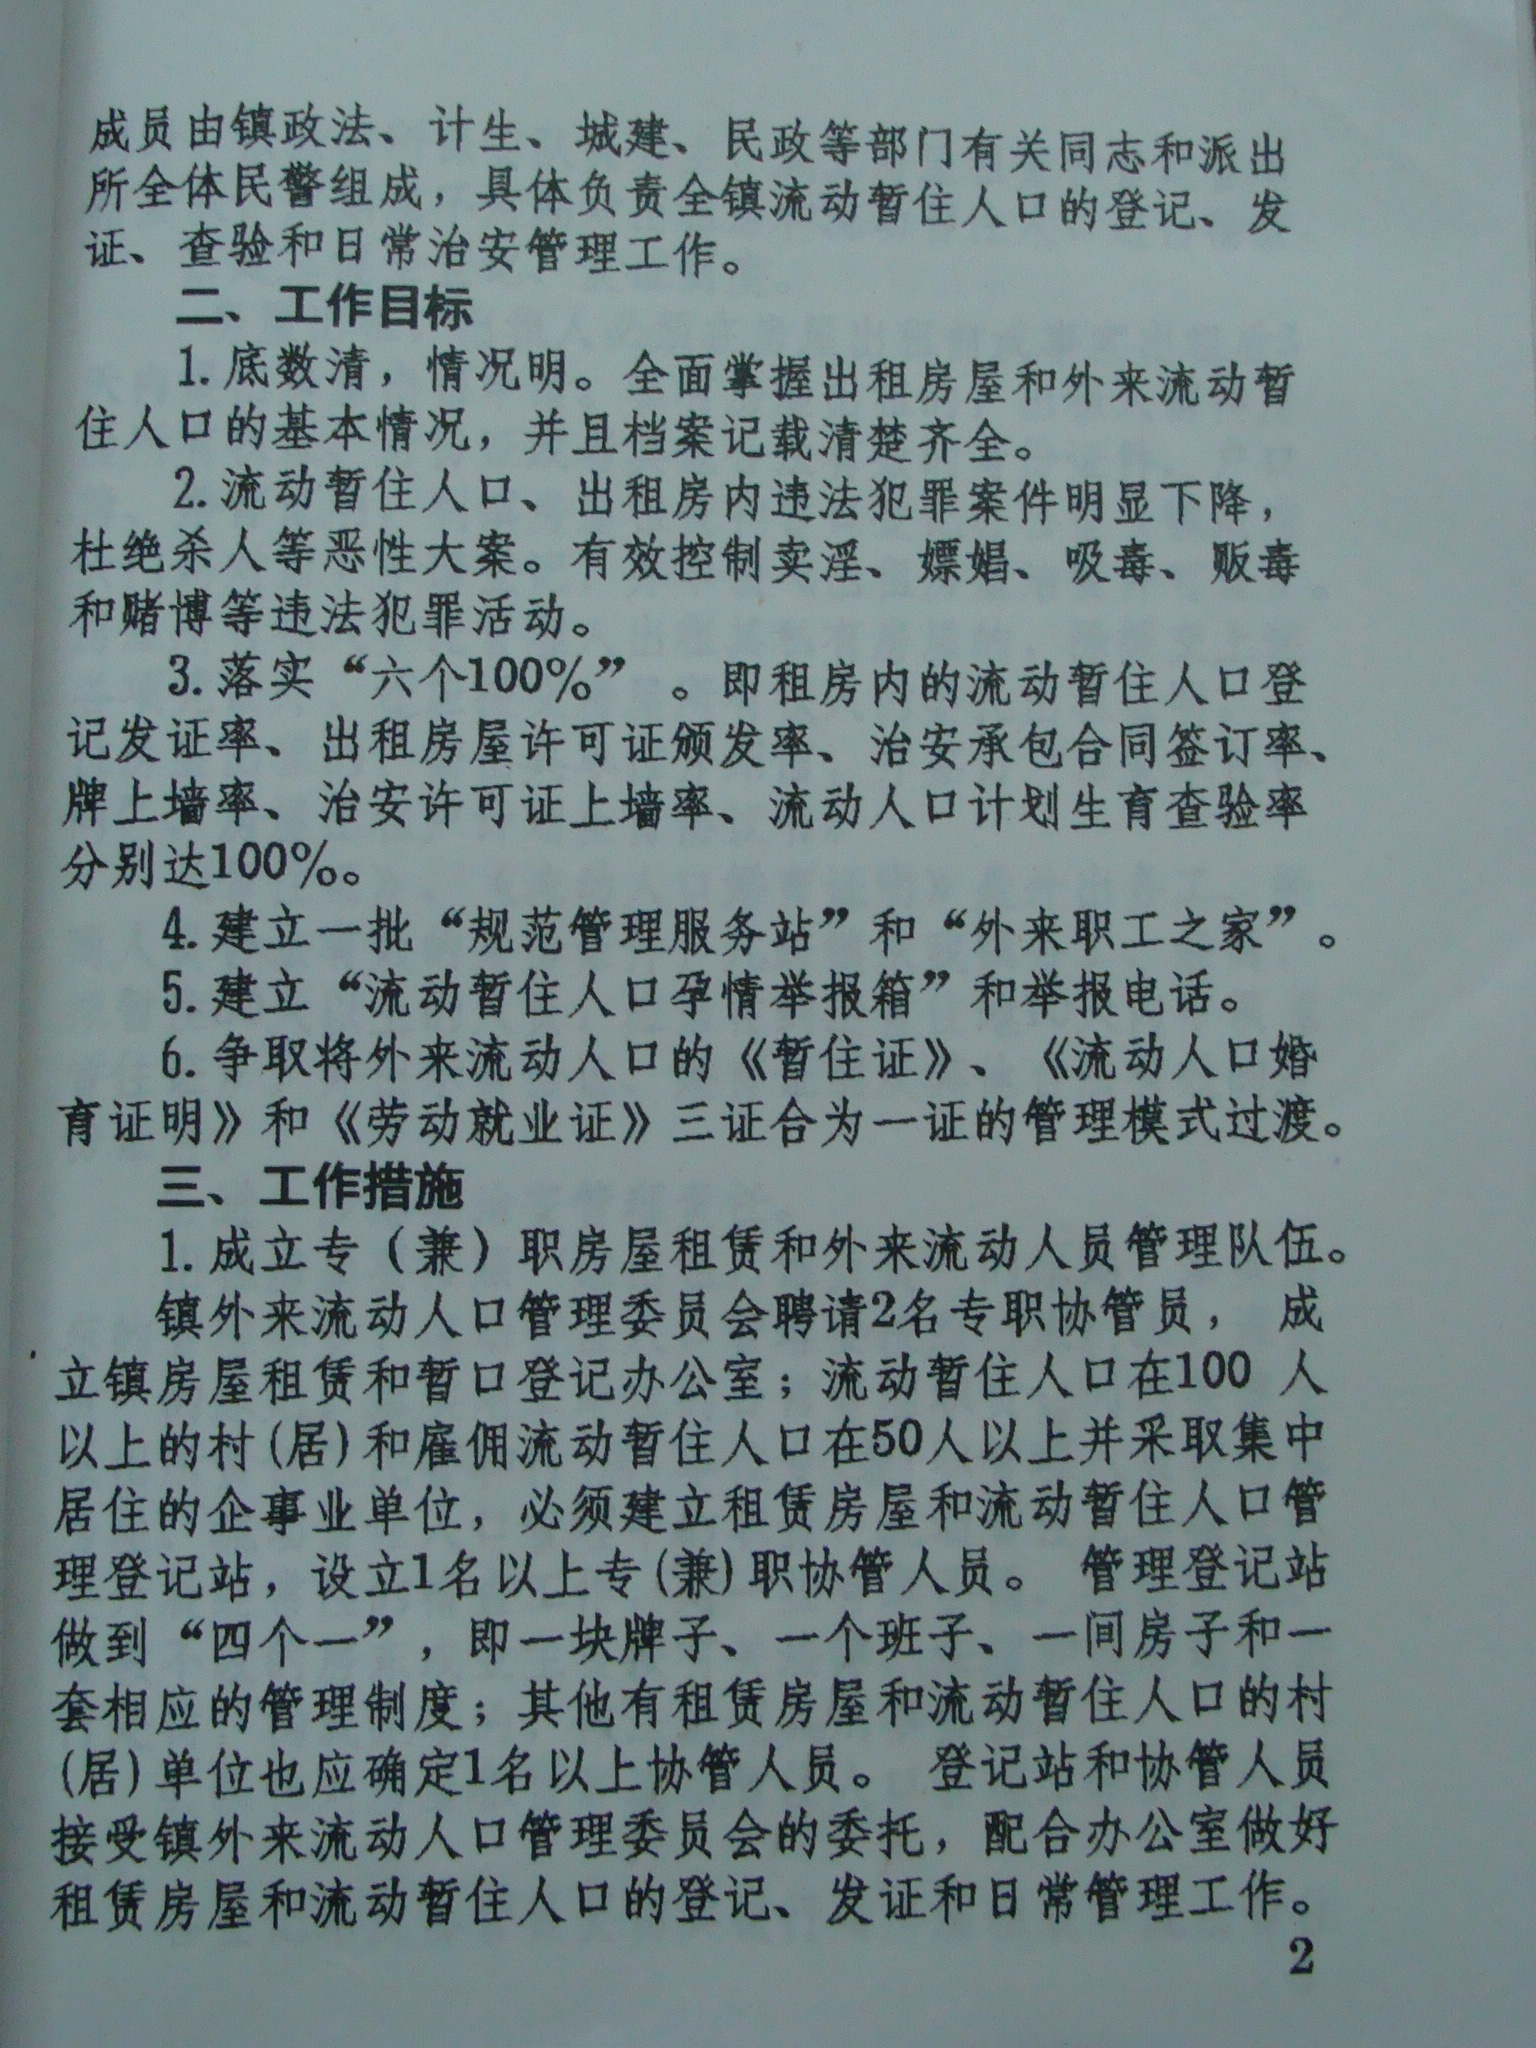 成员由镇政法、计生、城建、民政等部门有关同志和派出
所全体民警组成，具体负责全镇流动暂住人口的登记、发
证、查验和日常治安管理工作。
二、工作目标
1.底数清，情况明。全面掌握出租房屋和外来流动暂
住人口的基本情况，并且档案记载清楚齐全。
2.流动暂住人口、出租房内违法犯罪案件明显下降，
杜绝杀人等恶性大案。有效控制卖淫、嫖娼、吸毒、贩毒
和赌博等违法犯罪活动。
3.落实“六个100%”。即租房内的流动暂住人口登
记发证率、出租房屋许可证颁发率、治安承包合同签订率、
牌上墙率、治安许可证上墙率、流动人口计划生育查验率
分别达100%。
4.建立一批“规范管理服务站”和“外来职工之家”。
5.建立“流动暂住人口孕情举报箱”和举报电话。
6.争取将外来流动人口的《暂住证》、《流动人口婚
育证明》和《劳动就业证》三证合为一证的管理模式过渡。
三、工作措施
1.成立专（兼）职房屋租赁和外来流动人员管理队伍。
镇外来流动人口管理委员会聘请2名专职协管员， 成
立镇房屋租赁和暂口登记办公室；流动暂住人口在100 人
以上的村(居)和雇佣流动暂住人口在50人以上并采取集中
居住的企事业单位，必须建立租赁房屋和流动暂住人口管
理登记站，设立1名以上专(兼)职协管人员。 管理登记站
做到“四个一”，即一块牌子、一个班子、一间房子和一
套相应的管理制度；其他有租赁房屋和流动暂住人口的村
(居)单位也应确定1名以上协管人员。 登记站和协管人员
接受镇外来流动人口管理委员会的委托，配合办公室做好
租赁房屋和流动暂住人口的登记、发证和日常管理工作。
2